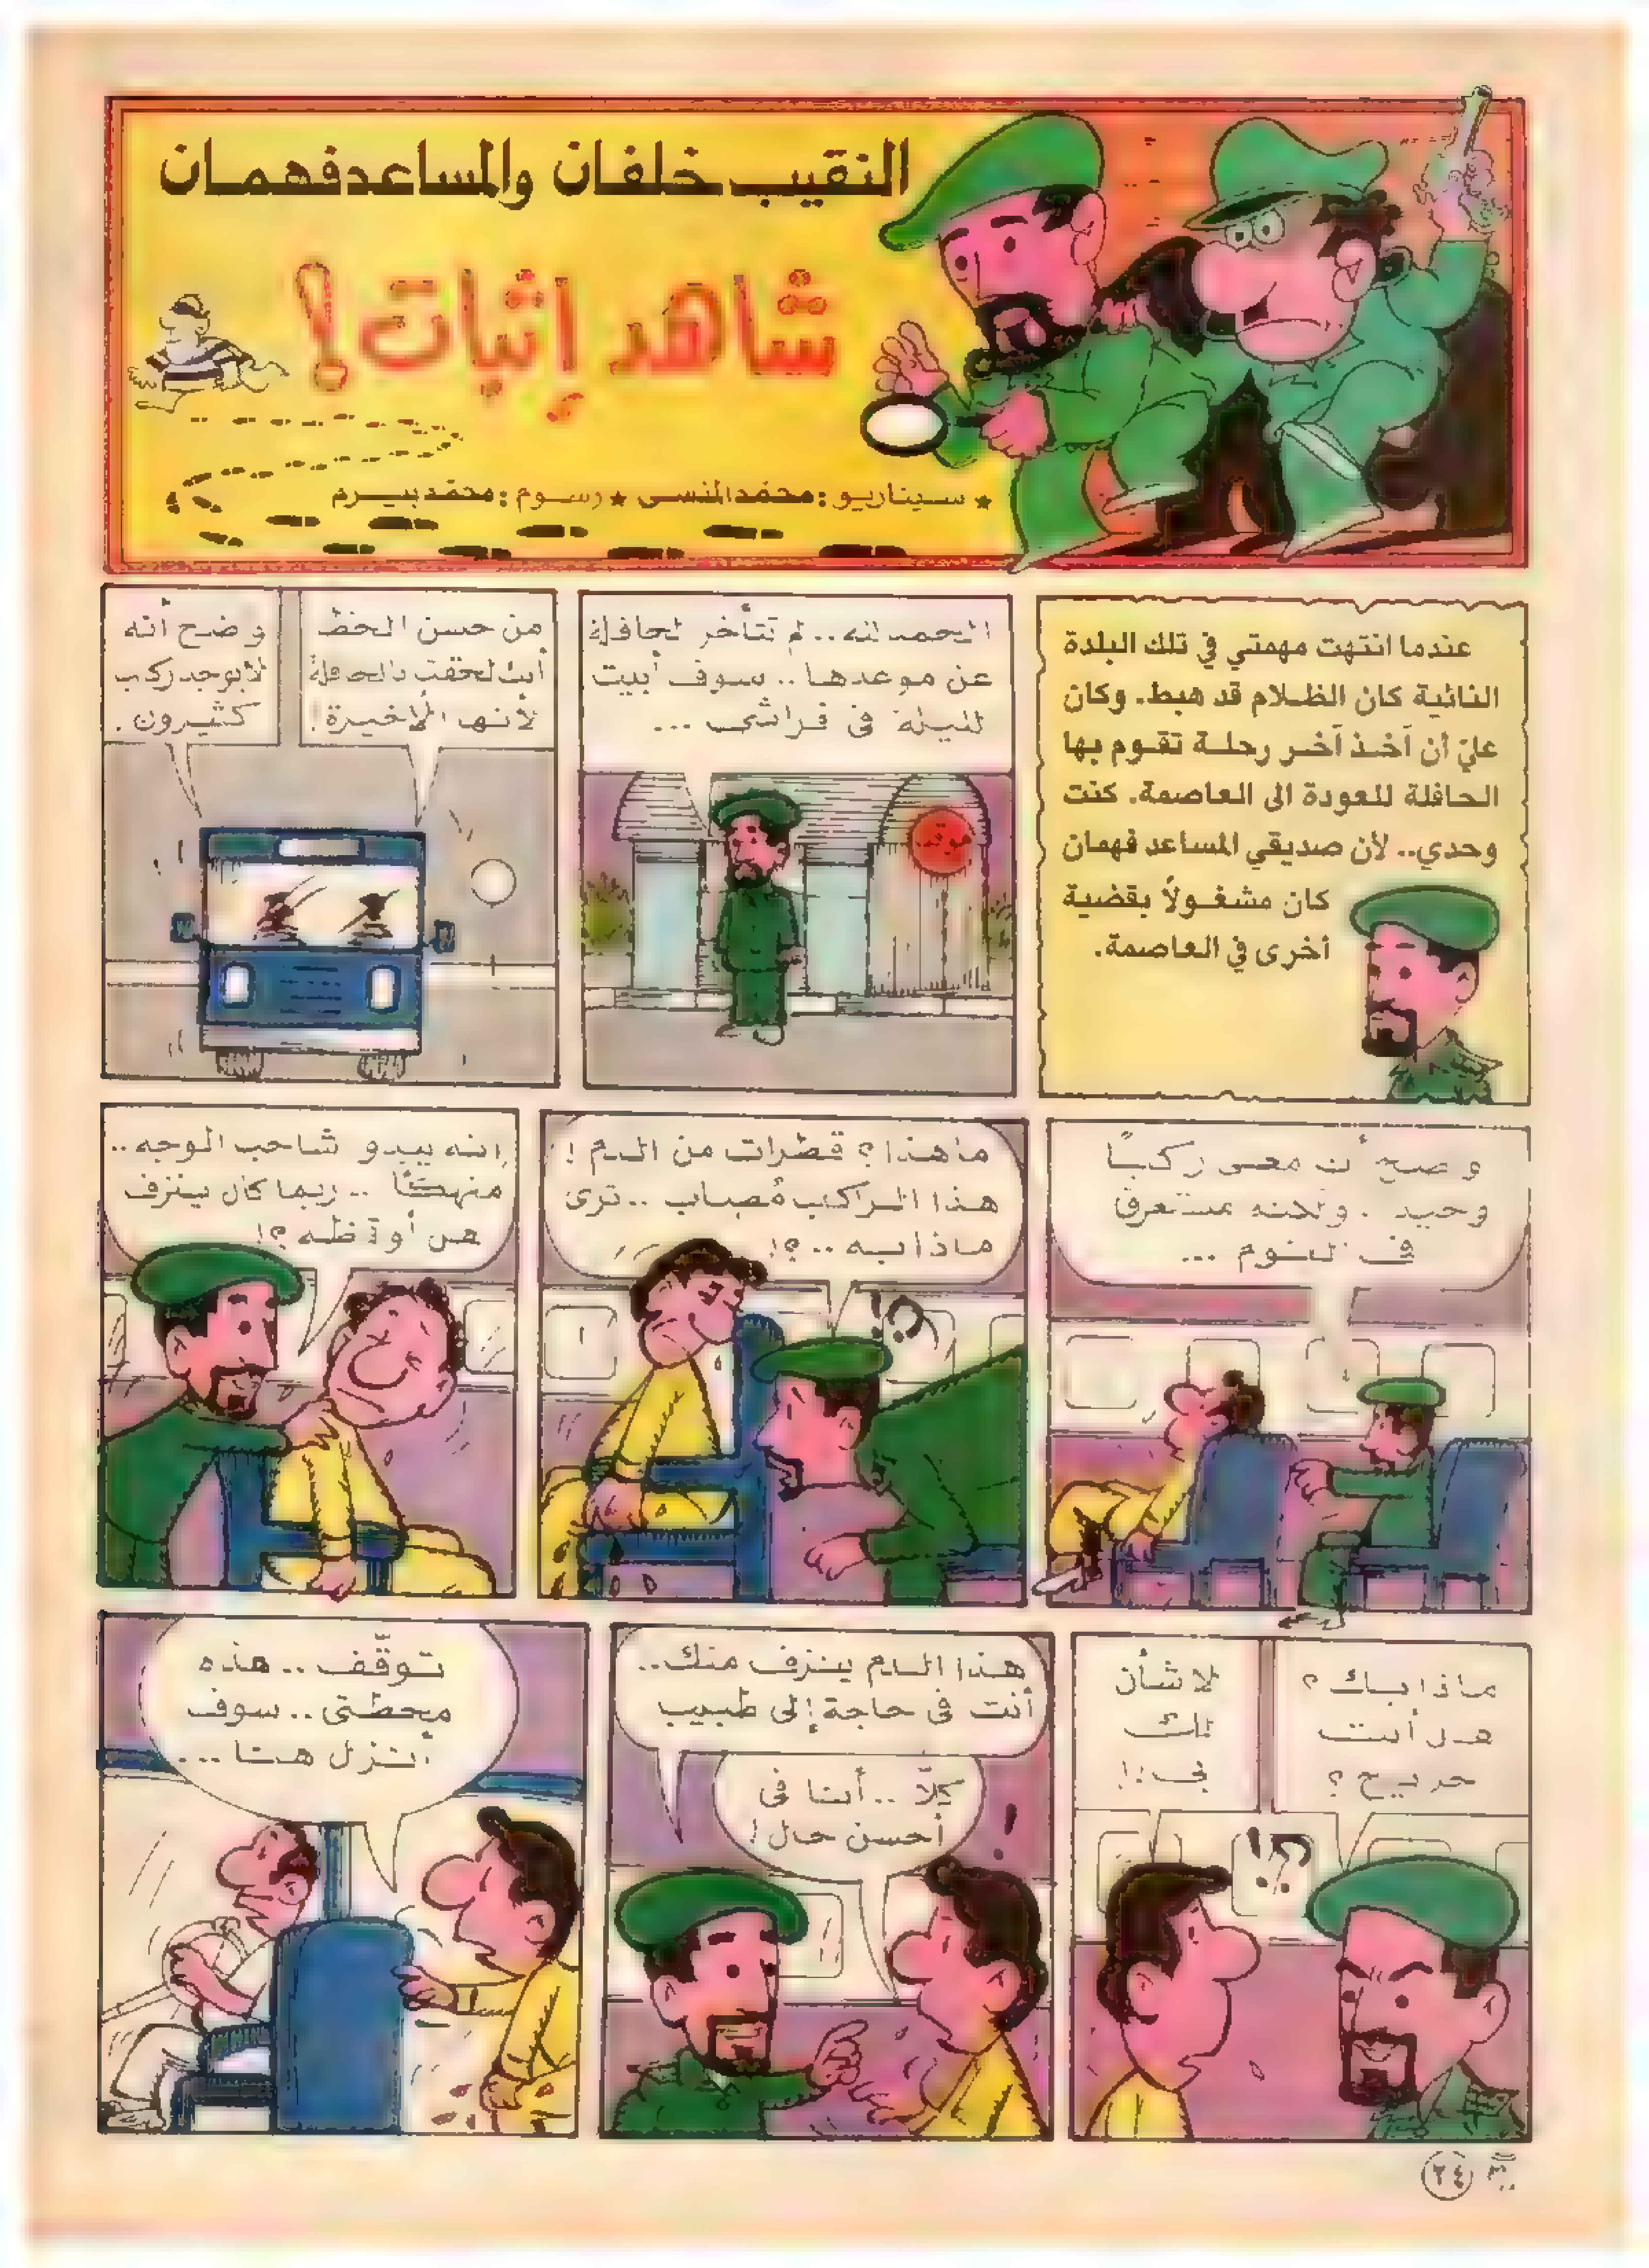 النقيب خلفان والمساعد فهمان
شاهد إثبات!
★ سيناريو: محمد المنسى ★ رسوم: محمد بيرم
عندما انتهت مهمتي في تلك البلدة
النائية كان الظلام قد هبط. وكان
عليّ أن آخذ آخر رحلة تقوم بها
الحافلة للعودة الى العاصمة. كنت
وحدي.. لأن صديقي المساعد فهمان
كان مشغولاً بقضية
أخرى في العاصمة.
الحمد لله.. لم تتأخر الحافلة
عن موعدها.. سوف أبيت
الليلة فى فراشى ...
موقف
من حسن الحظ
أنك لحقت بالحافلة
لأنها الأخيرة!
وضح أنه
لا يوجد ركاب
كثيرون.
وضح أن معى راكبًا
وحيد.. ولكنه مستغرق
فى النوم ...
ما هذا؟ قطرات من الدم!
هذا الراكب مُصاب.. ترى
ماذا به..؟!
إنه يبدو شاحب الوجه..
منهكًا.. ربما كان ينزف
هل أوقظه؟!
ماذا بك؟
هل أنت
جريح؟
لا شأن
لك
بى!!
هذا الدم ينزف منك..
أنت فى حاجة إلى طبيب
كلّا.. أنا فى
أحسن حال!
توقّف.. هذه
محطتى.. سوف
أنزل هنا...
٢٤